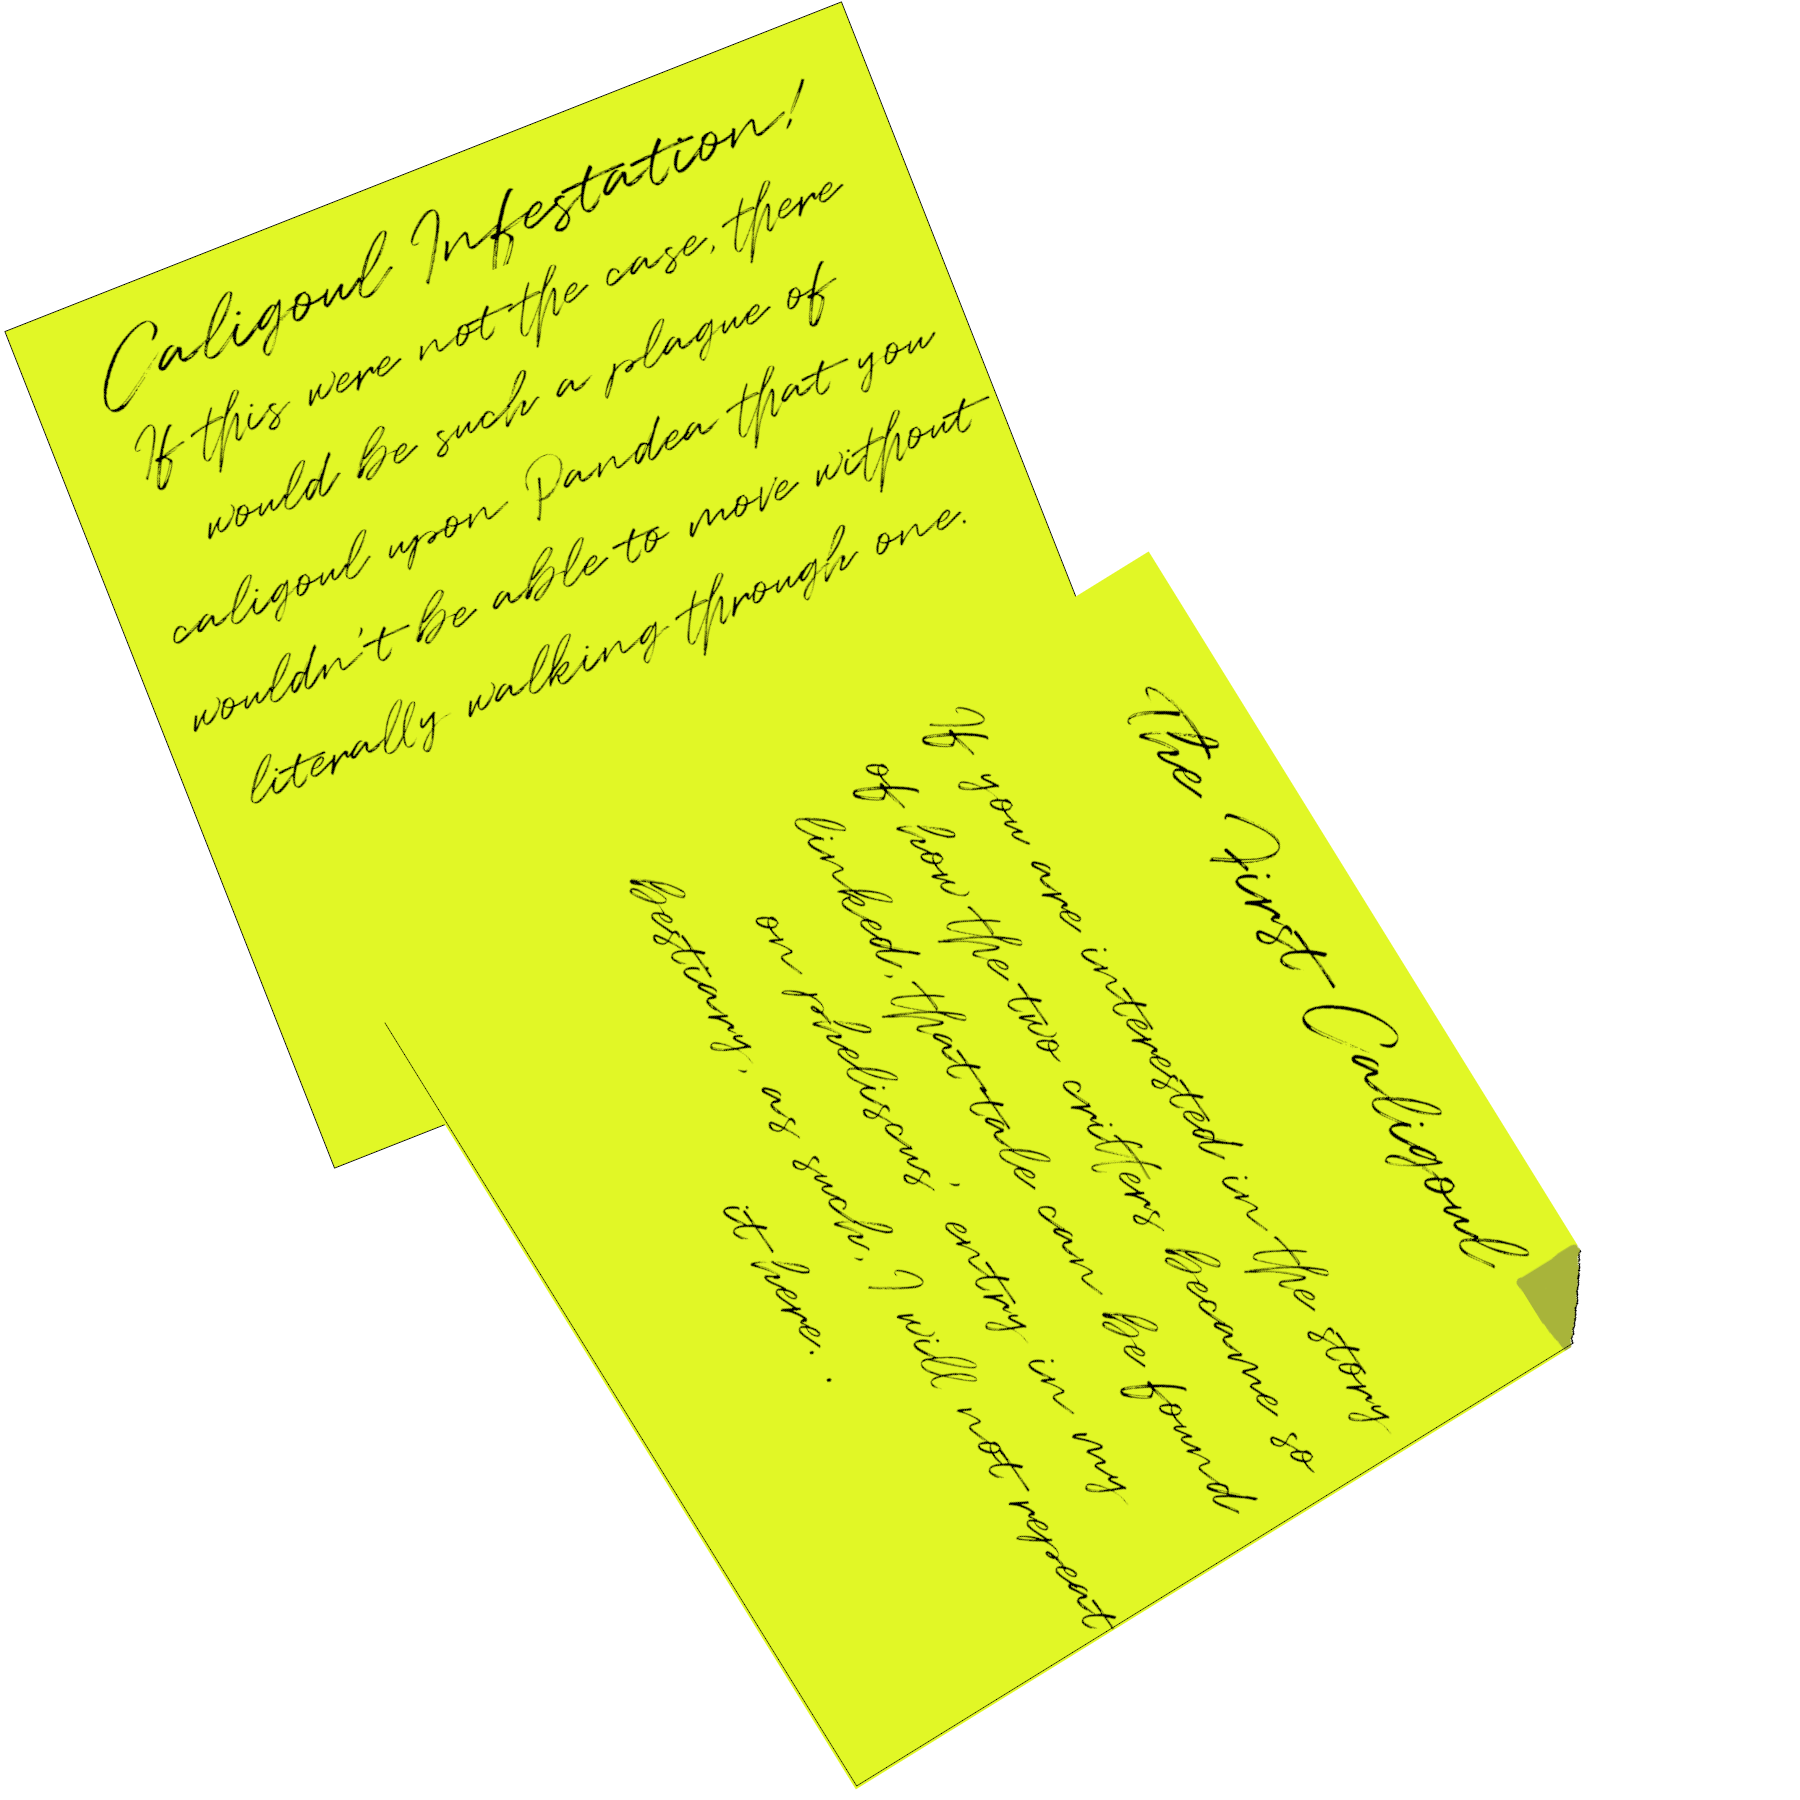 Caligoul Infestation!
If this were not the case, there
would be such a plague of
caligoul upon Pandea that you
wouldn't be able to move without
literally walking through one.
The First Caligoul
If you are interested in the story
of how the two critters became so
linked, that tale can be found
on pheliscus' entry in my
bestiary, as such, I will not repeat
it here. .